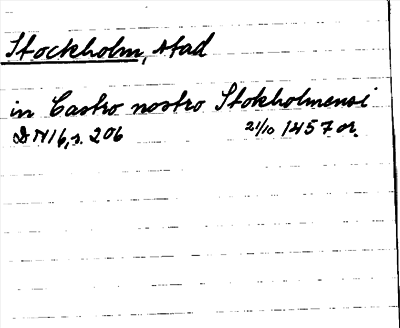 Stockholm, stad
in Castro nostro Stokholmensi
DN16, s. 206 21/10 1457 or.